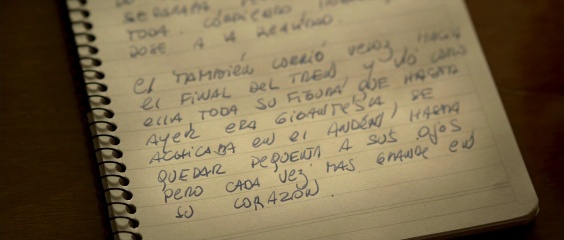 SE
TODA. CORRIENDO
DOSE A LA REALIDAD.
ÉL TAMBIÉN CORRIÓ VELOZ HACIA
EL FINAL DEL TREN, Y VIÓ COMO
ELLA TODA SU FIGURA QUE HASTA
AYER ERA GIGANTESCA SE
ACHICABA EN EL ANDÉN, HASTA
QUEDAR PEQUEÑA A SUS OJOS
PERO CADA VEZ MAS GRANDE EN
SU CORAZÓN.